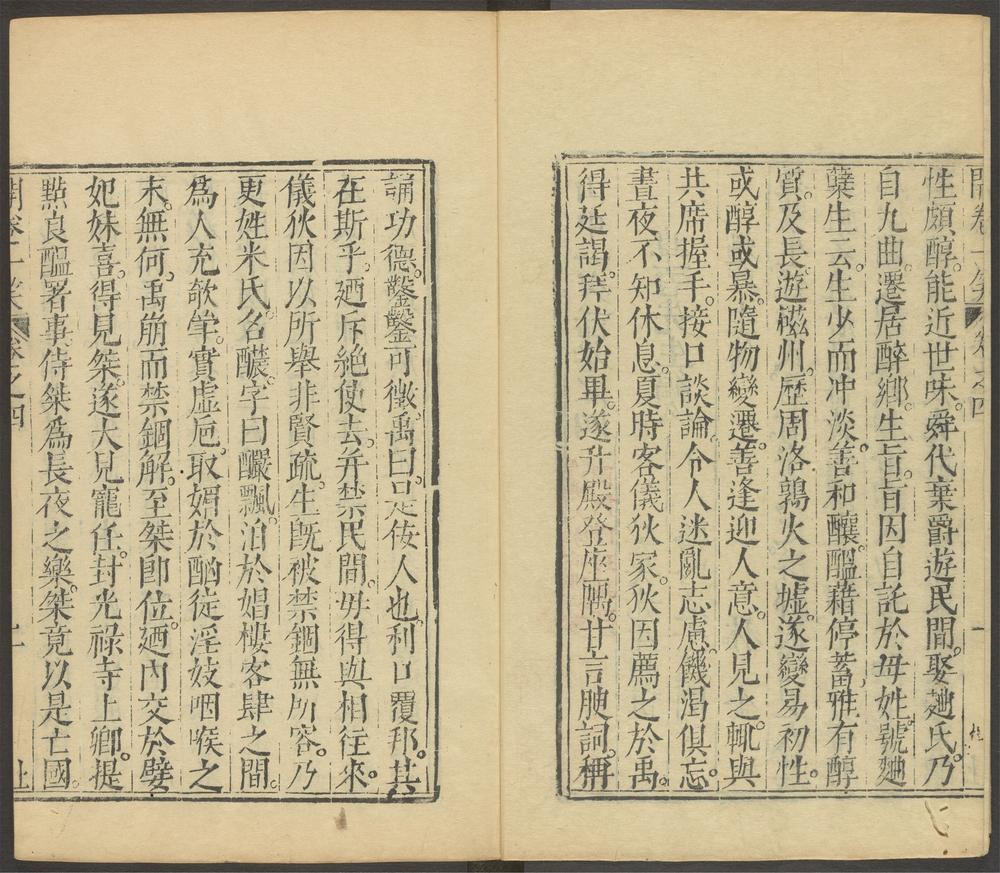 開卷一笑 卷之四 一
性頗醇能近世味。舜代棄爵遊民間。娶麯氏。乃
自九曲。遷居醉鄉。生旨。旨因自託於母姓。號麯
蘖生云。生少而冲淡。善和釀。醞藉停蓄。雅有醇
質。及長。遊磁州。歷周洛鶉火之墟。遂變易初性。
或醇或暴。隨物變遷。善逢迎人意。人見之。輒與
共席握手。接口談論。令人迷亂志慮。饑渴俱忘。
晝夜不知休息。夏時客儀狄家。狄因薦之於禹。
得廷謁。拜伏始畢。遂升殿登座隅。甘言腴詞。稱
誦功德。鑿鑿可徵。禹曰。是佞人也。利口覆邦。其
在斯乎。廼斥絕使去。并禁民間。毋得與相往來。
儀狄因以所舉非賢疏。生旣被禁錮無所容。乃
更姓米氏。名醲。字曰釅。飄泊於娼樓客肆之間。
爲人充欲罕。實虛卮。取媚於酗徒淫妓咽喉之
末。無何。禹崩而禁錮解。至桀卽位。廼內交於嬖
妃妹喜。得見桀。遂大見寵任。封光祿寺上卿。提
點良醞署事。侍桀爲長夜之樂。桀竟以是亡國。
開卷一笑 卷之四 二